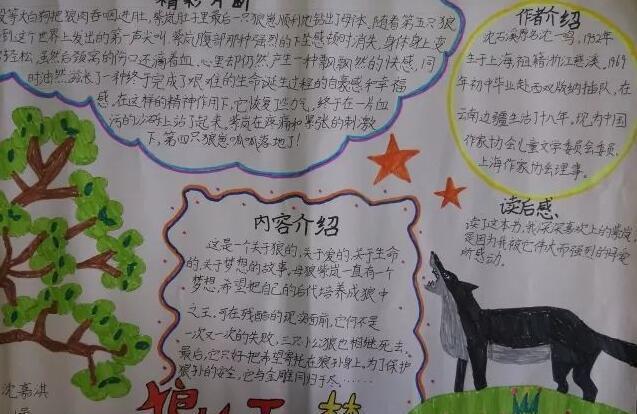 精彩片断
等大白狗把狼肉吞咽进肚，紫岚肚子里最后一只狼崽顺利地钻出了母体，随着第五只狼
到这个世界上发出的第一声尖叫，紫岚腹部那种强烈的下坠感顿时消失，身体身上变
轻松，虽然后颈窝的伤口还滴着血，心里却仍然产生一种飘飘然的快感，同
时油然滋长了一种终于完成了艰难的生命诞生过程的自豪感和幸福
感，在这样的精神作用下，它恢复了些力气，终于在一片血
污的沙砾上站了起来，紫岚在疼痛和紧张的刺激
下，第四只狼崽呱呱落地了！
作者介绍
沈石溪原名沈一鸣，1952年
生于上海，祖籍浙江慈溪，1969
年初中毕业赴西双版纳插队，在
云南边疆生活了十八年，现为中国
作家协会儿童文学委员会委员，
上海作家协会理事。
内容介绍
这是一个关于狼的，关于爱的，关于生命
的，关于梦想的故事，母狼紫岚一直有一个
梦想，希望把自己的后代培养成狼中
之王，可在残酷的现实面前，它们不是
一次又一次的失败，三只小公狼也相继死去，
最后，它只好把希望寄托在狼孙身上，为了保护
狼孙的安全，它与金雕同归于尽……
读后感
读了这本书，我深深喜欢上的紫岚，
是因为我被它伟大而强烈的母爱
所感动。
沈嘉淇
狼王梦